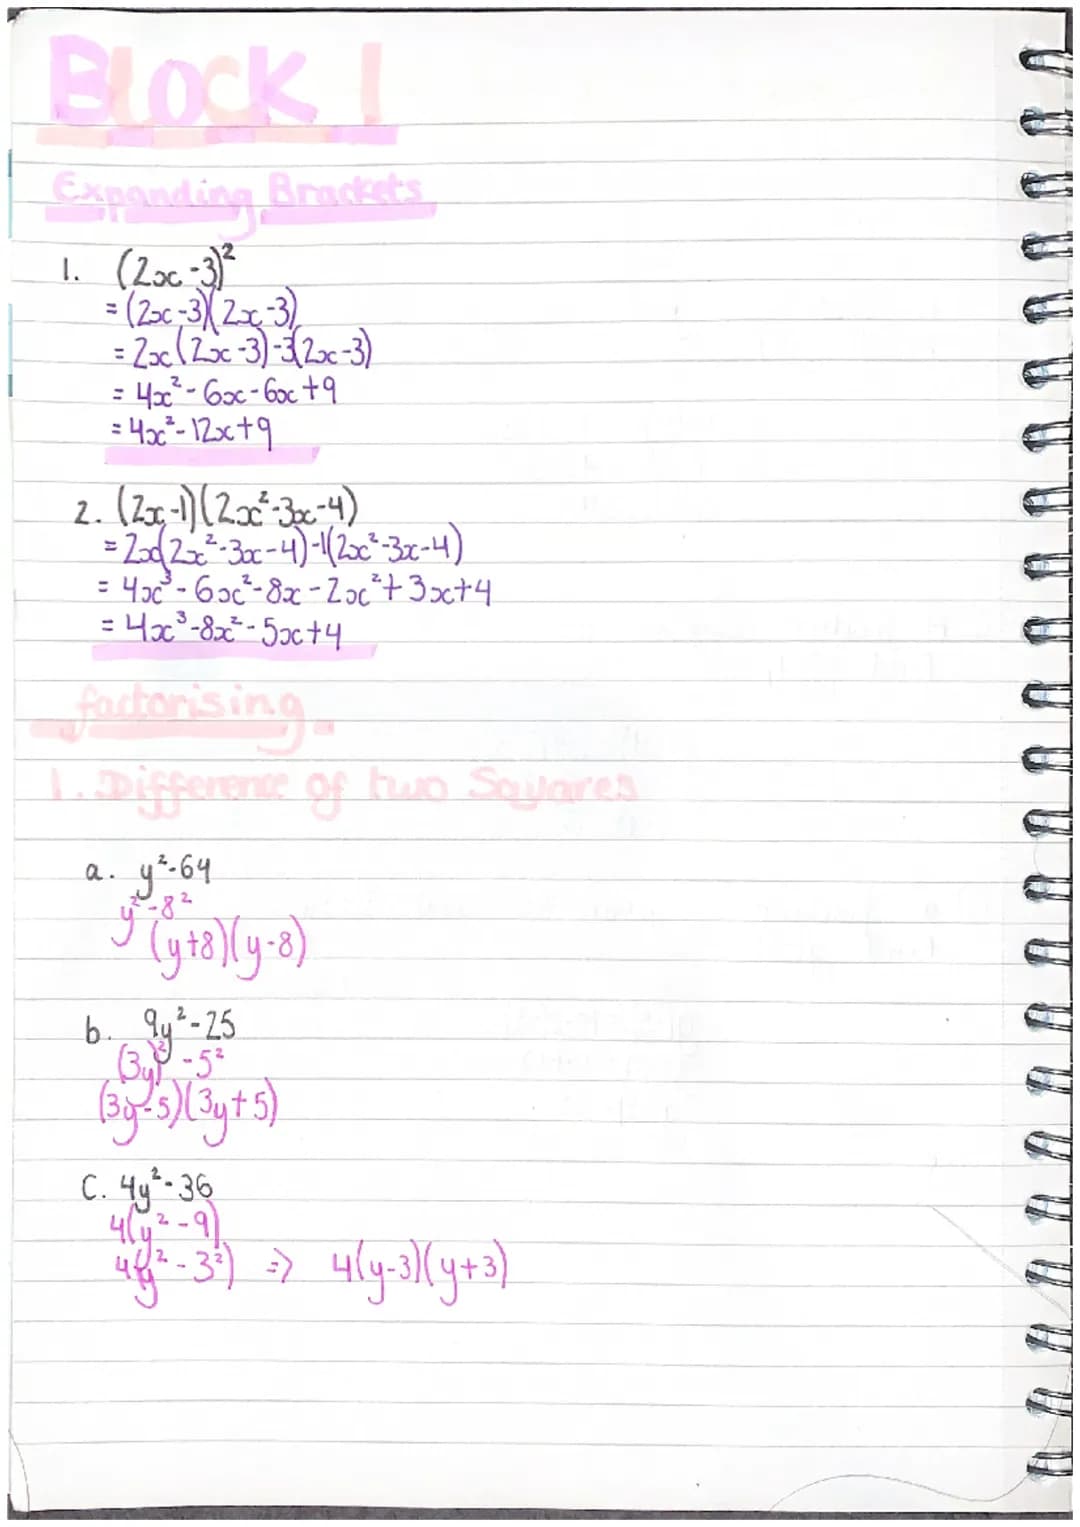 BLOCK 1
Expanding Brackets
1. (2x-3)²
= (2x-3)(2x-3)
= 2x(2x-3)-3(2x-3)
= 4x²-6x-6x+9
= 4x²-12x+9
2. (2x-1)(2x²-3x-4)
= 2x(2x²-3x-4)-1(2x²-3x-4)
= 4x³-6x²-8x-2x²+3x+4
= 4x³-8x²-5x+4
factorising.
1. Difference of two Squares
a. y²-64
y²-8²
(y+8)(y-8)
b. 9y²-25
(3y)²-5²
(3y-5)(3y+5)
C. 4y²-36
4(y²-9)
4(y²-3²) => 4(y-3)(y+3)